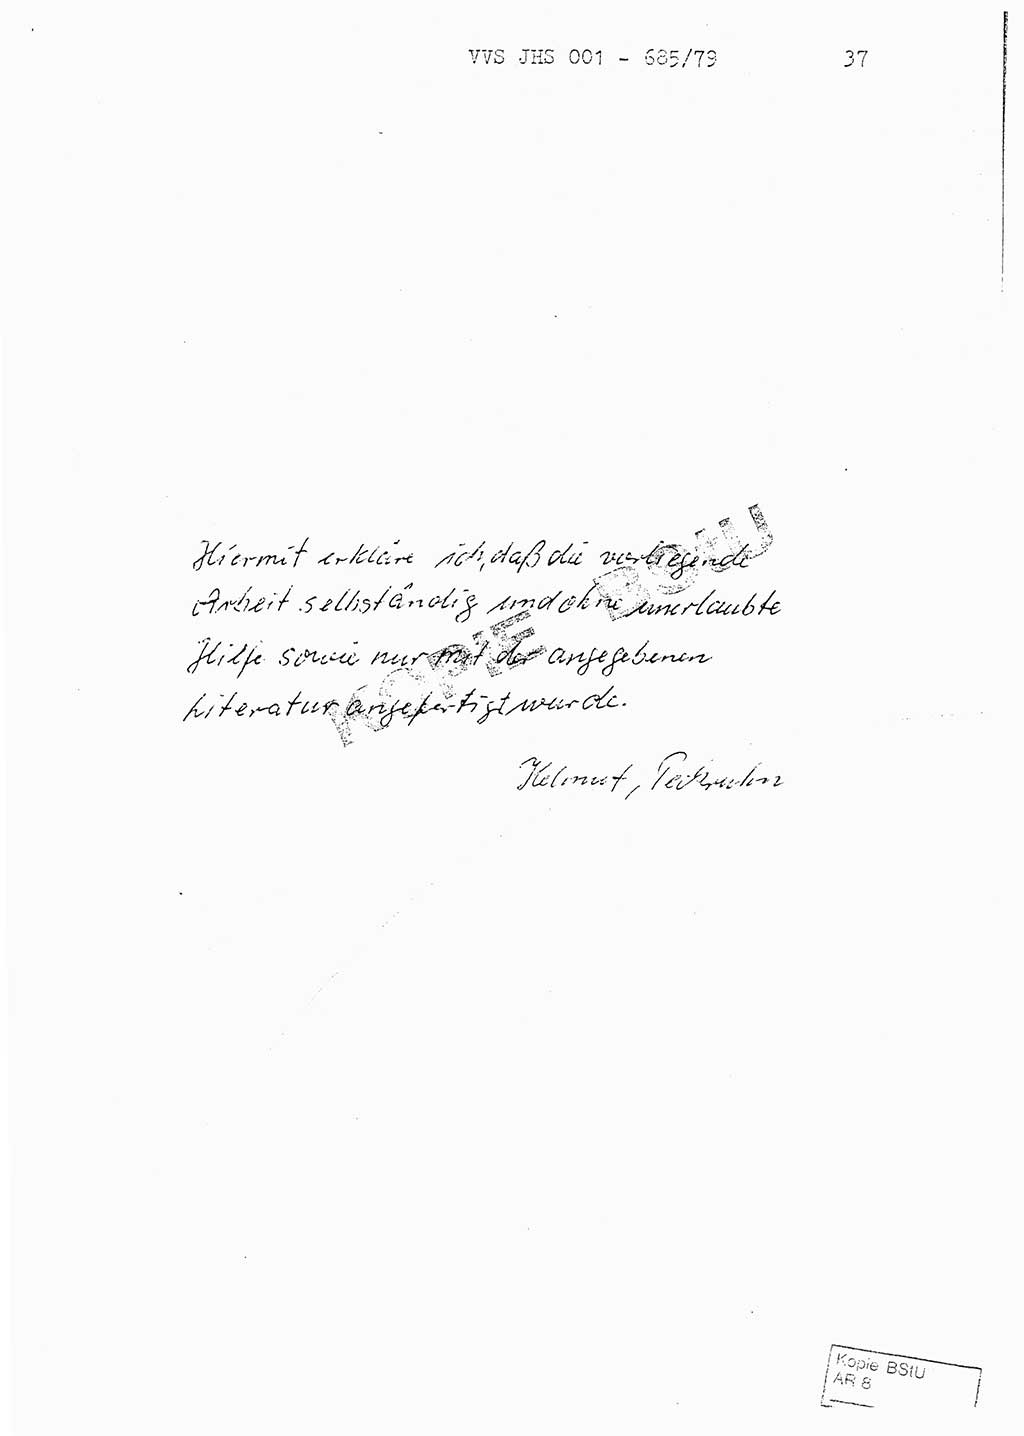 VVS JHS 001 - 685/79 37
Hiermit erkläre ich, daß die vorliegende
Arbeit selbständig und ohne unerlaubte
Hilfe sowie nur mit der angegebenen
Literatur angefertigt wurde.
Helmut,
KOPIE BStU
Kopie BStU
AR 8